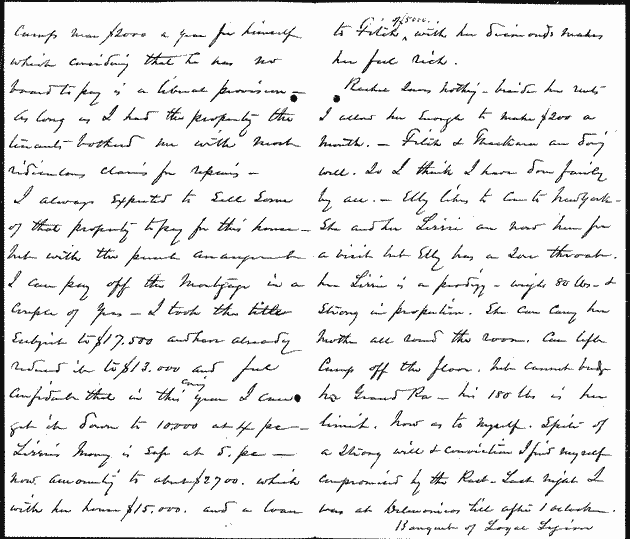 Cump now $2000 a year for himself
which considering that he has no
board to pay is a liberal provision —
As long as I had the property the
tenants bothered me with most
ridiculous claims for repairs —
I always expected to sell some
of that property to pay for this house —
but with the present arrangement
I can pay off the mortgage in a
couple of years — I took the title
subject to $17.500 and have already
reduced it to $13.000 and feel
confident that in this coming year I can
get it down to 10.000 at 4 pc —
Lizzie's money is safe at 5. pc —
now amounting to about $2700. which
with her house $15.000. and a loan
to Fitch of 5000. with her diamonds makes
her feel rich.
Rachel owes nothing — beside her rents
I allow her enough to make $200 a
month. — Fitch & Thackara are doing
well. So I think I have done fairly
by all. — Elly likes to come to New York —
She and her Lizzie are now here for
a visit but Elly has a sore throat.
her Lizzie is a prodigy — weighs 80 lbs — &
strong in proportion. She can carry her
mother all round the room. Can lift
Cump off the floor. but cannot budge
her Grand Pa — his 180 lbs is her
limit. Now as to myself. Spite of
a strong will & conviction I find myself
compromised by the Past. Last night I
was at Delmonicos till after 1 oclock —
Banquet of Loyal Legion